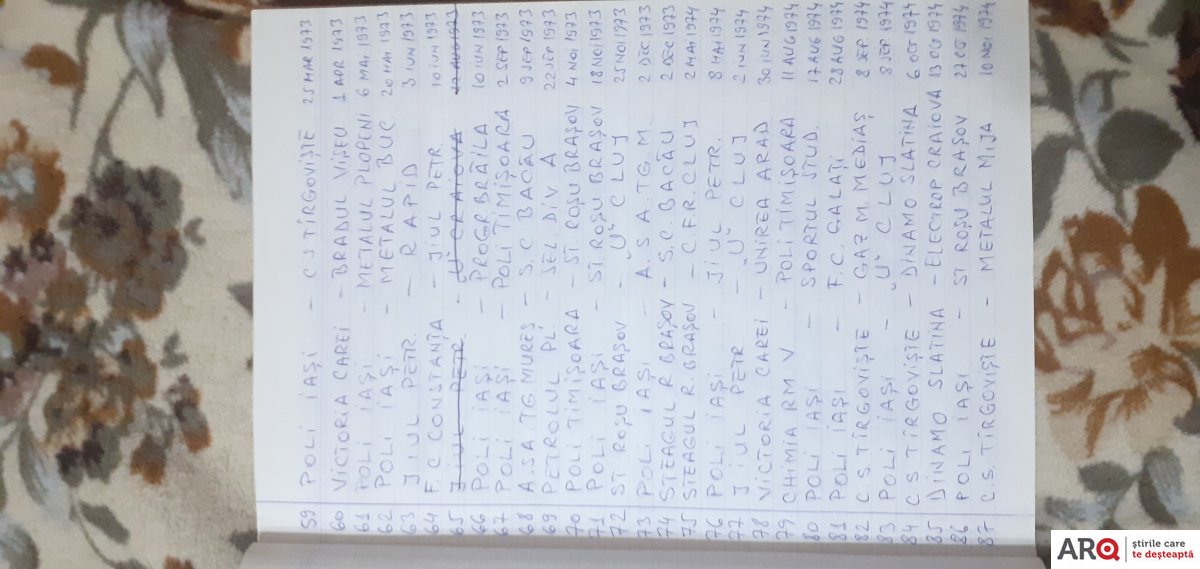 59 POLI IAȘI - C.S TÎRGOVIȘTE 25 MAR 1973
60 VICTORIA CAREI - BRADUL VIȘEU 1 APR 1973
61 POLI IAȘI - METALUL PLOPENI 6 MAI 1973
62 POLI IAȘI - METALUL BUC. 20 MAI 1973
63 JIUL PETR. - RAPID 3 IUN 1973
64 F.C. CONSTANȚA - JIUL PETR. 10 IUN 1973
65 JIUL PETR. - "U" CRAIOVA 1973
66 POLI IAȘI - PROGR BRĂILA 10 IUN 1973
67 POLI IAȘI - POLI TIMIȘOARA 2 SEP 1973
68 A.S.A. TG. MUREȘ - S.C BACĂU 9 SEP 1973
69 PETROLUL PL. - SEL. DIV A 22 SEP 1973
70 POLI TIMIȘOARA - ST. ROȘU BRAȘOV 4 NOI 1973
71 POLI IAȘI - ST ROȘU BRAȘOV 18 NOI 1973
72 ST ROȘU BRAȘOV - "U" CLUJ 25 NOI 1973
73 POLI IAȘI - A.S.A. TG. M. 2 DEC 1973
74 STEAGUL R. BRAȘOV - S.C. BACĂU 2 DEC 1973
75 STEAGUL R. BRAȘOV - C.F.R. CLUJ 2 MAI 1974
76 POLI IAȘI - JIUL PETR. 8 MAI 1974
77 JIUL PETR. - "U" CLUJ 2 IUN 1974
78 VICTORIA CAREI - UNIREA ARAD 30 IUN 1974
79 CHIMIA RM V - POLI TIMIȘOARA 11 AUG 1974
80 POLI IAȘI - SPORTUL STUD. 17 AUG 1974
81 POLI IAȘI - F.C. GALAȚI 28 AUG 1974
82 C.S TÎRGOVIȘTE - GAZ. M. MEDIAȘ 8 SEP 1974
83 POLI IAȘI - "U" CLUJ 8 SEP 1974
84 C.S TÎRGOVIȘTE - DINAMO SLATINA 6 OCT 1974
85 DINAMO SLATINA - ELECTROP. CRAIOVA 13 OCT 1974
86 POLI IAȘI - ST ROȘU BRAȘOV 27 OCT 1974
87 C.S. TÎRGOVIȘTE - METALUL MIJA 10 NOI 1974
ARQ știrile care
te deșteaptă